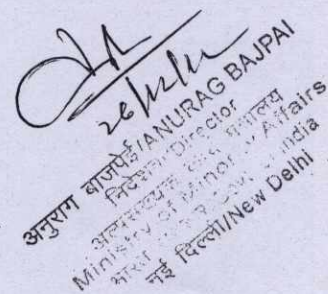 26/12/12
अनुराग बाजपेई/ANURAG BAJPAI
निदेशक/Director
अल्पसंख्यक कार्य मंत्रालय
Ministry of Minority Affairs
भारत India
नई दिल्ली/New Delhi